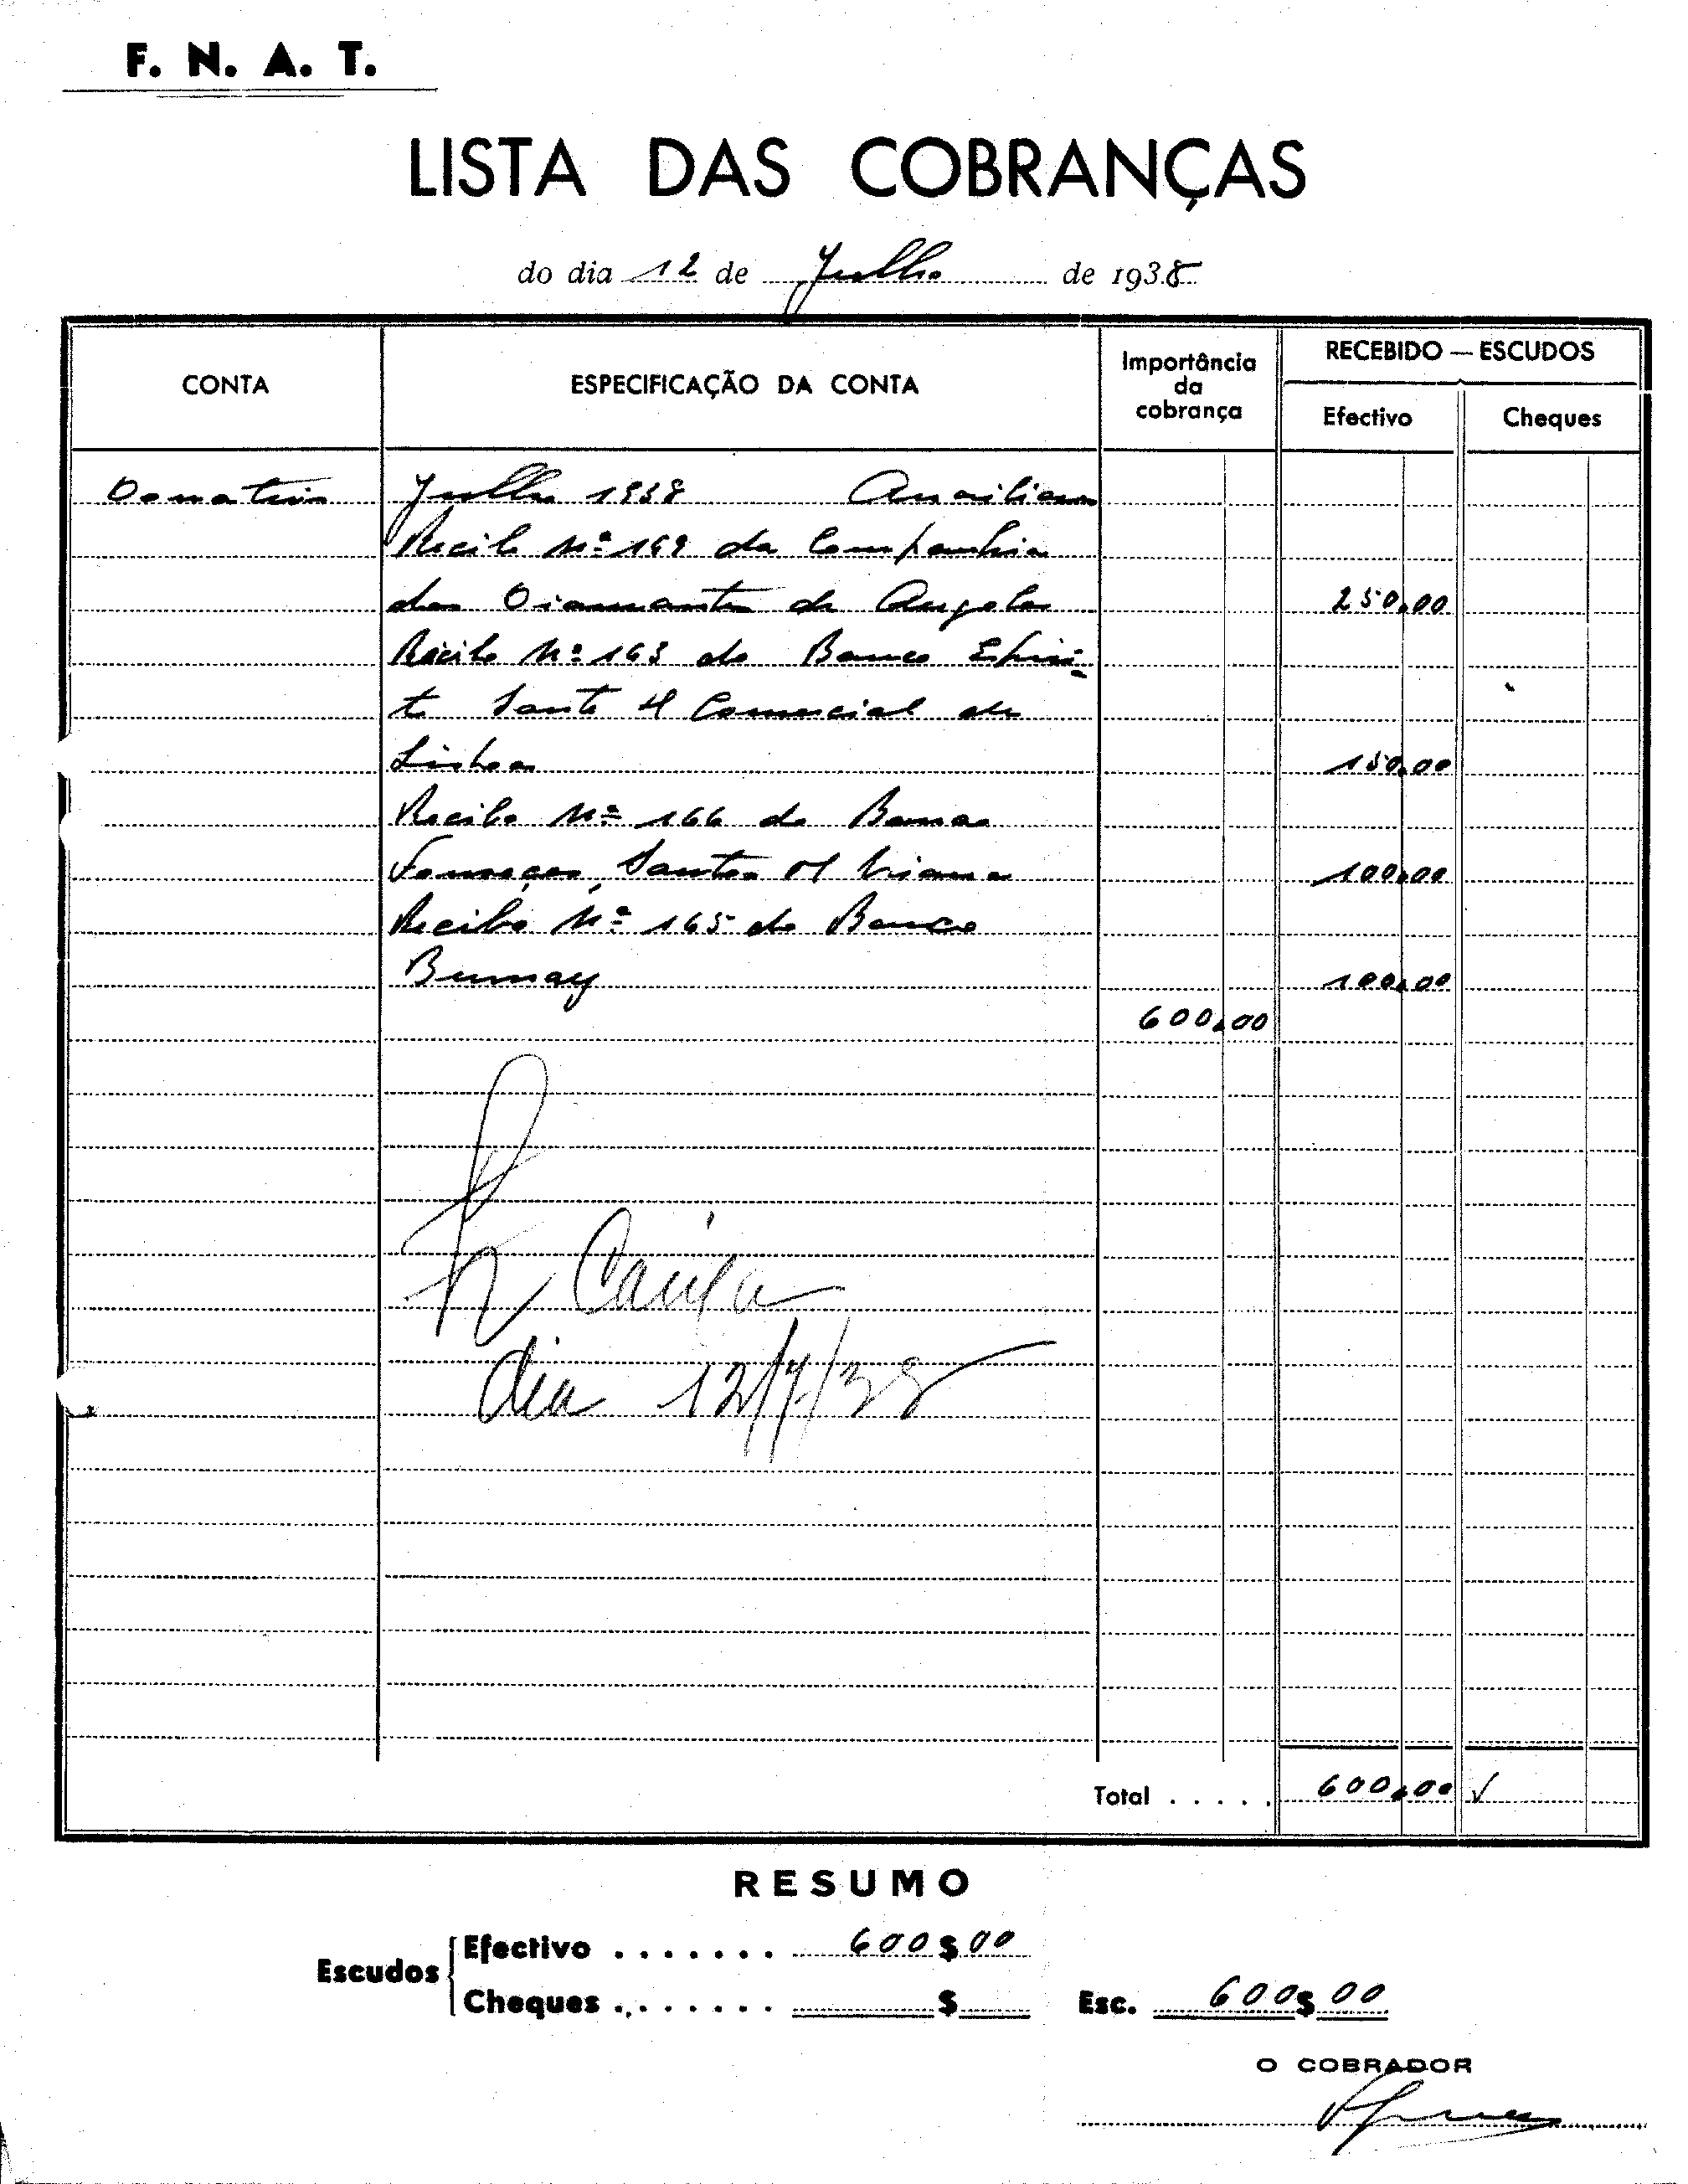 F. N. A. T.
LISTA DAS COBRANÇAS
do dia 12 de Julho de 1938
CONTA
ESPECIFICAÇÃO DA CONTA
Importância
da
cobrança
RECEBIDO — ESCUDOS
Efectivo
Cheques
Donativos Julho 1938 Auxiliares
Recibo Nº 169 da Companhia
dos Diamantes de Angola 250,00
Recibo Nº 163 do Banco Espiri-
to Santo Comercial de
Lisboa 150,00
Recibo Nº 166 do Banco
Fonsecas, Santos Viana 100,00
Recibo Nº 165 do Banco
Burnay 100,00
600,00
Caixa
dia 12/7/38
Total . . . . . 600,00 ✓
RESUMO
Escudos
Efectivo . . . . . . . 600$00
Cheques . . . . . . . $
Esc. 600$00
O COBRADOR